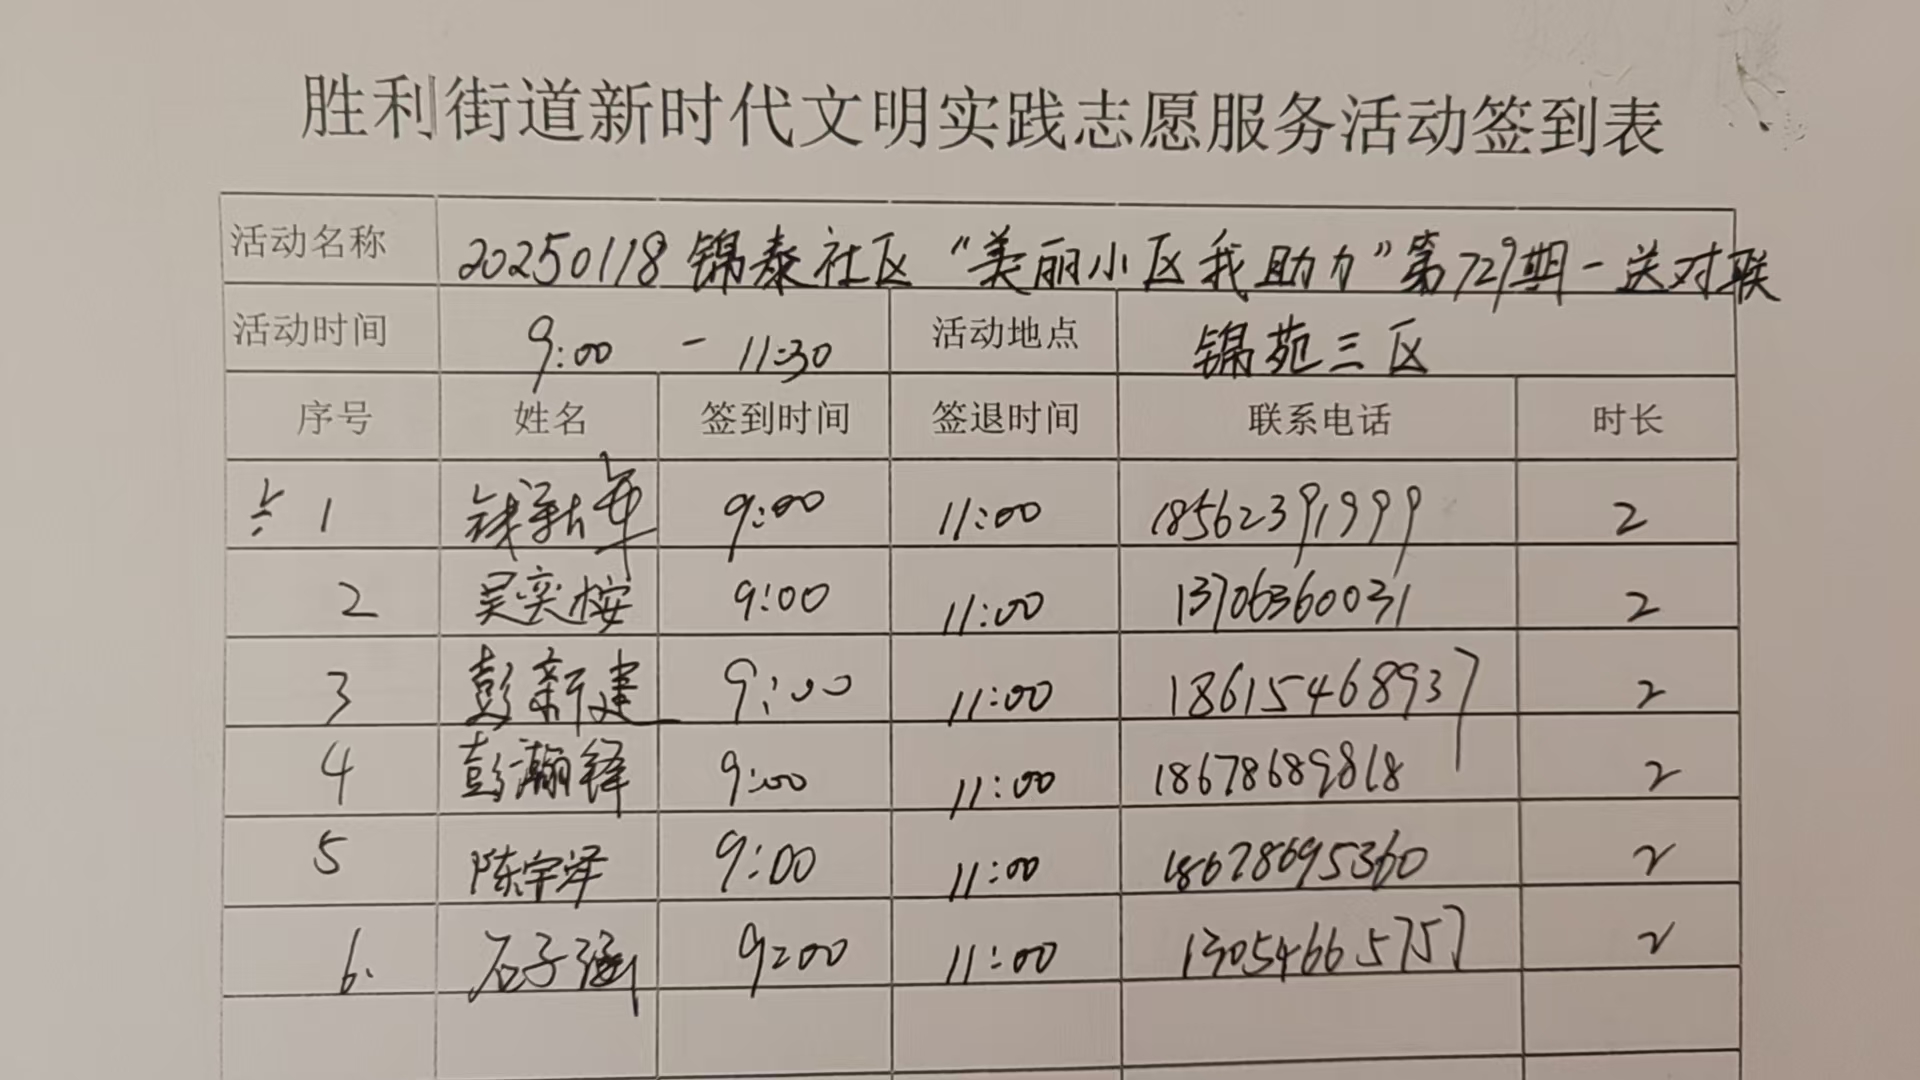 胜利街道新时代文明实践志愿服务活动签到表
活动名称 20250118 锦泰社区“美丽小区我助力”第729期-送对联
活动时间 9:00 - 11:30 活动地点 锦苑三区
序号 姓名 签到时间 签退时间 联系电话 时长
1 钱新年 9:00 11:00 18562391999 2
2 吴奕桉 9:00 11:00 13706360031 2
3 彭新建 9:00 11:00 18615468937 2
4 彭瀚锋 9:00 11:00 18678689818 2
5 陈宇泽 9:00 11:00 18678695360 2
6. 石子涵 9:00 11:00 13054665757 2